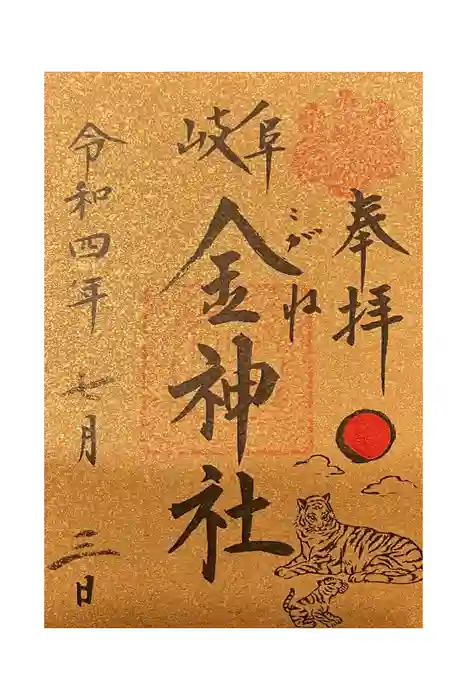 奉拝
岐阜
こがね
金神社
令和四年 七月 三日